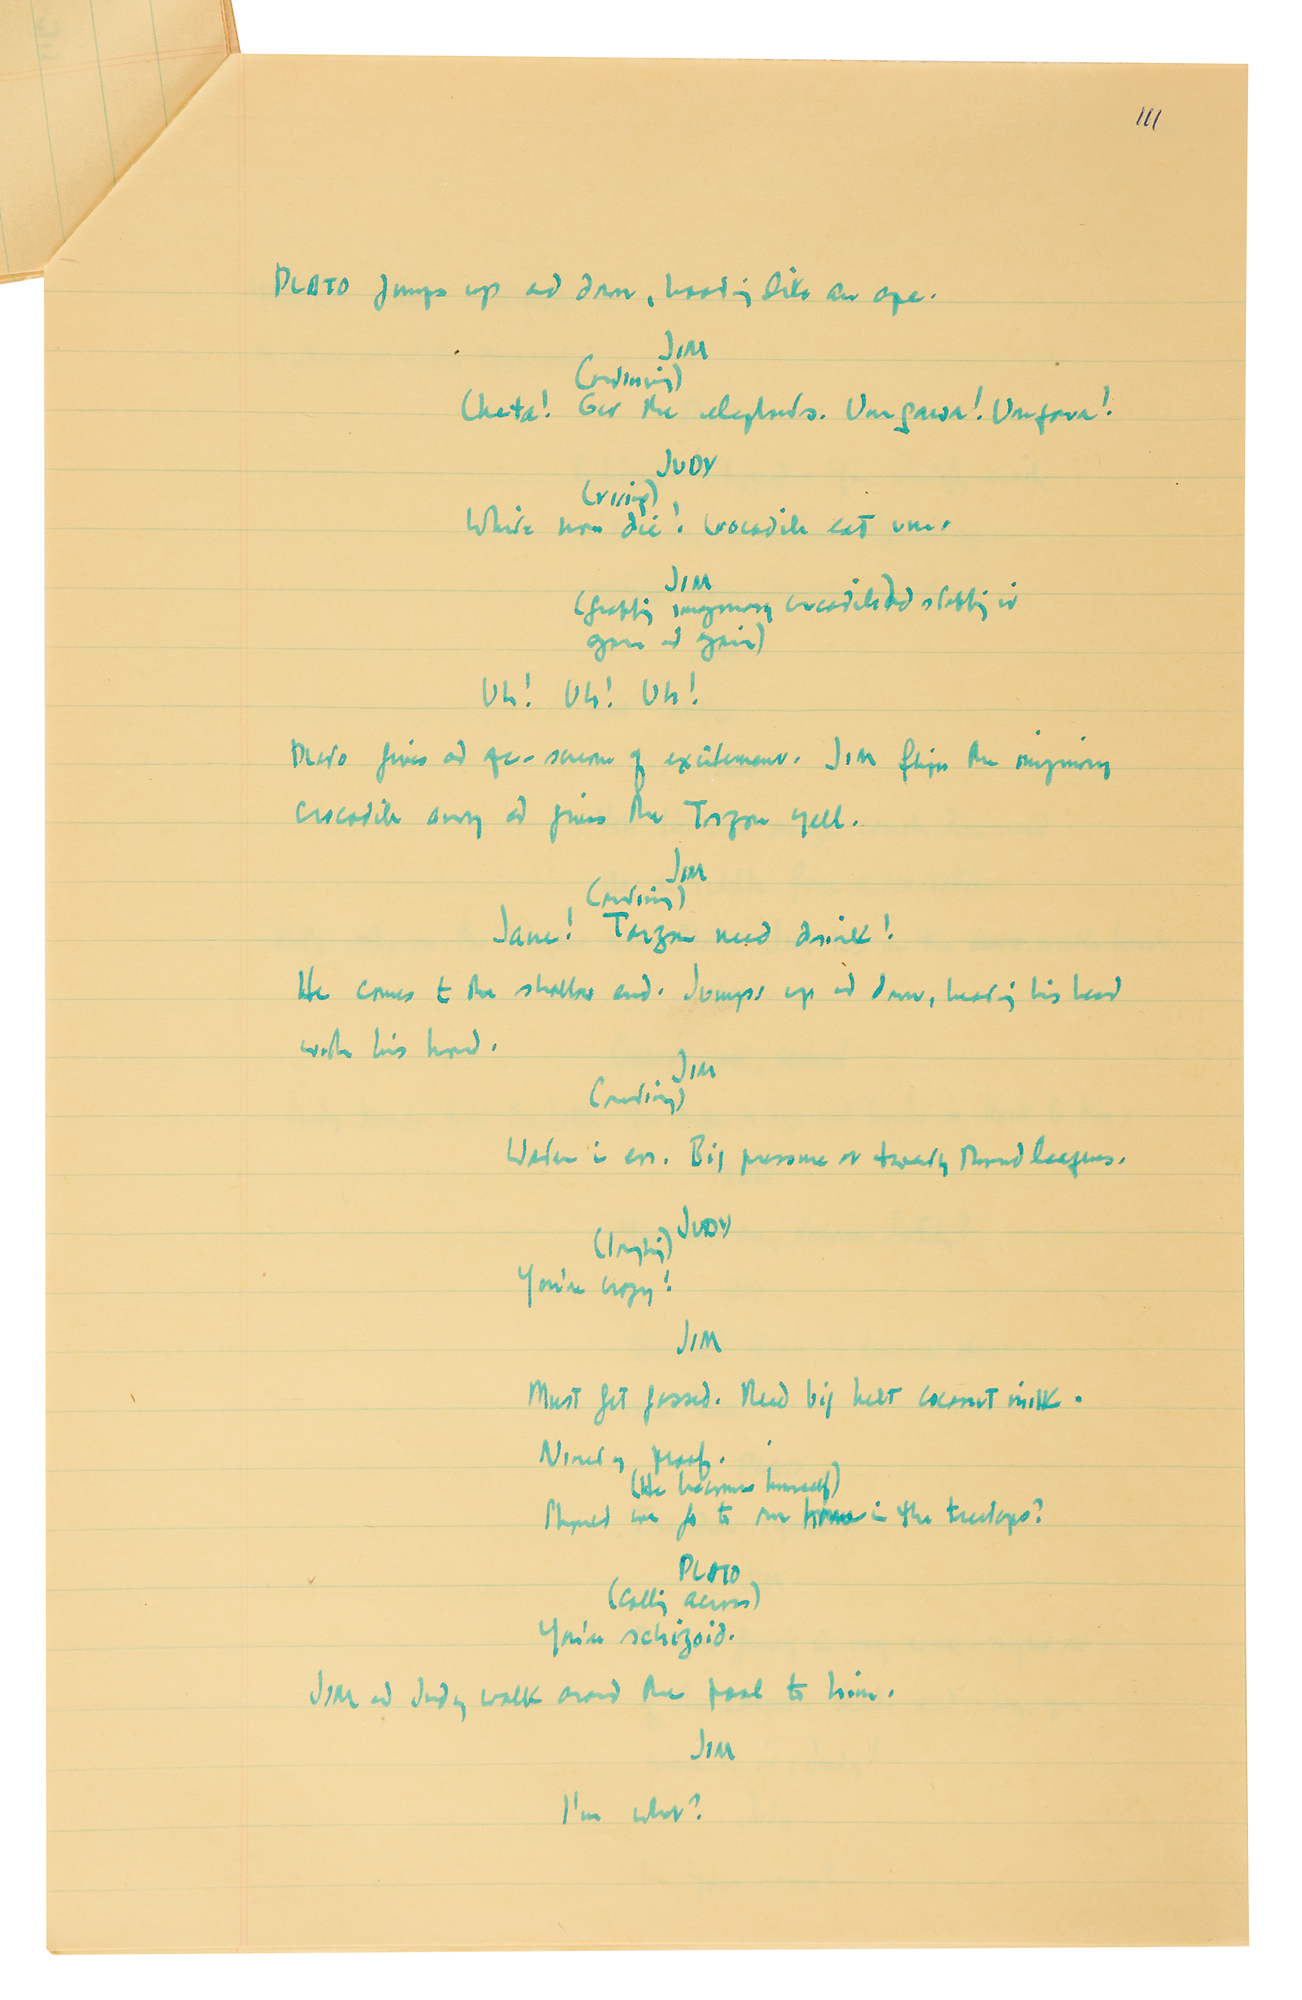 111
PLATO jumps up and down, hooting like an ape.
JIM
(continuing)
Cheta! Get the elephants. Umgawa! Umgawa!
JUDY
(rising)
White man die! Crocodile eat um.
JIM
(grabbing imaginary crocodile and stabbing it
again and again)
Uh! Uh! Uh!
Plato gives an ape-scream of excitement. JIM flips the imaginary
crocodile away and gives the Tarzan yell.
JIM
(continuing)
Jane! Tarzan need drink!
He comes to the shallow end. Jumps up and down, beating his head
with his hand.
JIM
(continuing)
Water in ear. Big pressure at twenty thousand leagues.
JUDY
(laughing)
You're crazy!
JIM
Must get gassed. Need big belt coconut milk.
Ninety proof.
(He becomes himself)
Should we go to our home in the treetops?
PLATO
(calling across)
You're schizoid.
JIM and Judy walk around the pool to him.
JIM
I'm what?